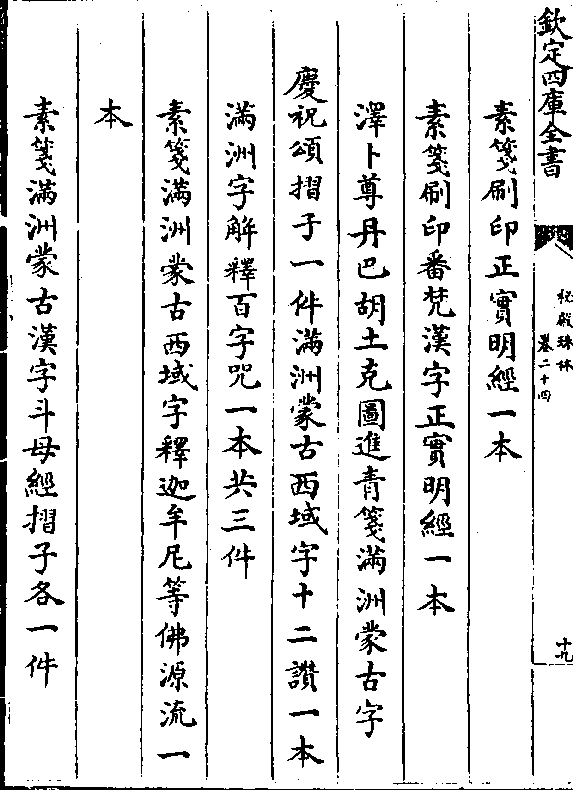 欽定四庫全書
秘殿珠林
卷二十四
十九
素箋刷印正實明經一本
素箋刷印番梵漢字正實明經一本
澤卜尊丹巴胡土克圖進青箋滿洲蒙古字
慶祝頌摺子一件滿洲蒙古西域字十二讚一本
滿洲字解釋百字咒一本共三件
素箋滿洲蒙古西域字釋迦牟尼等佛源流一
本
素箋滿洲蒙古漢字斗母經摺子各一件